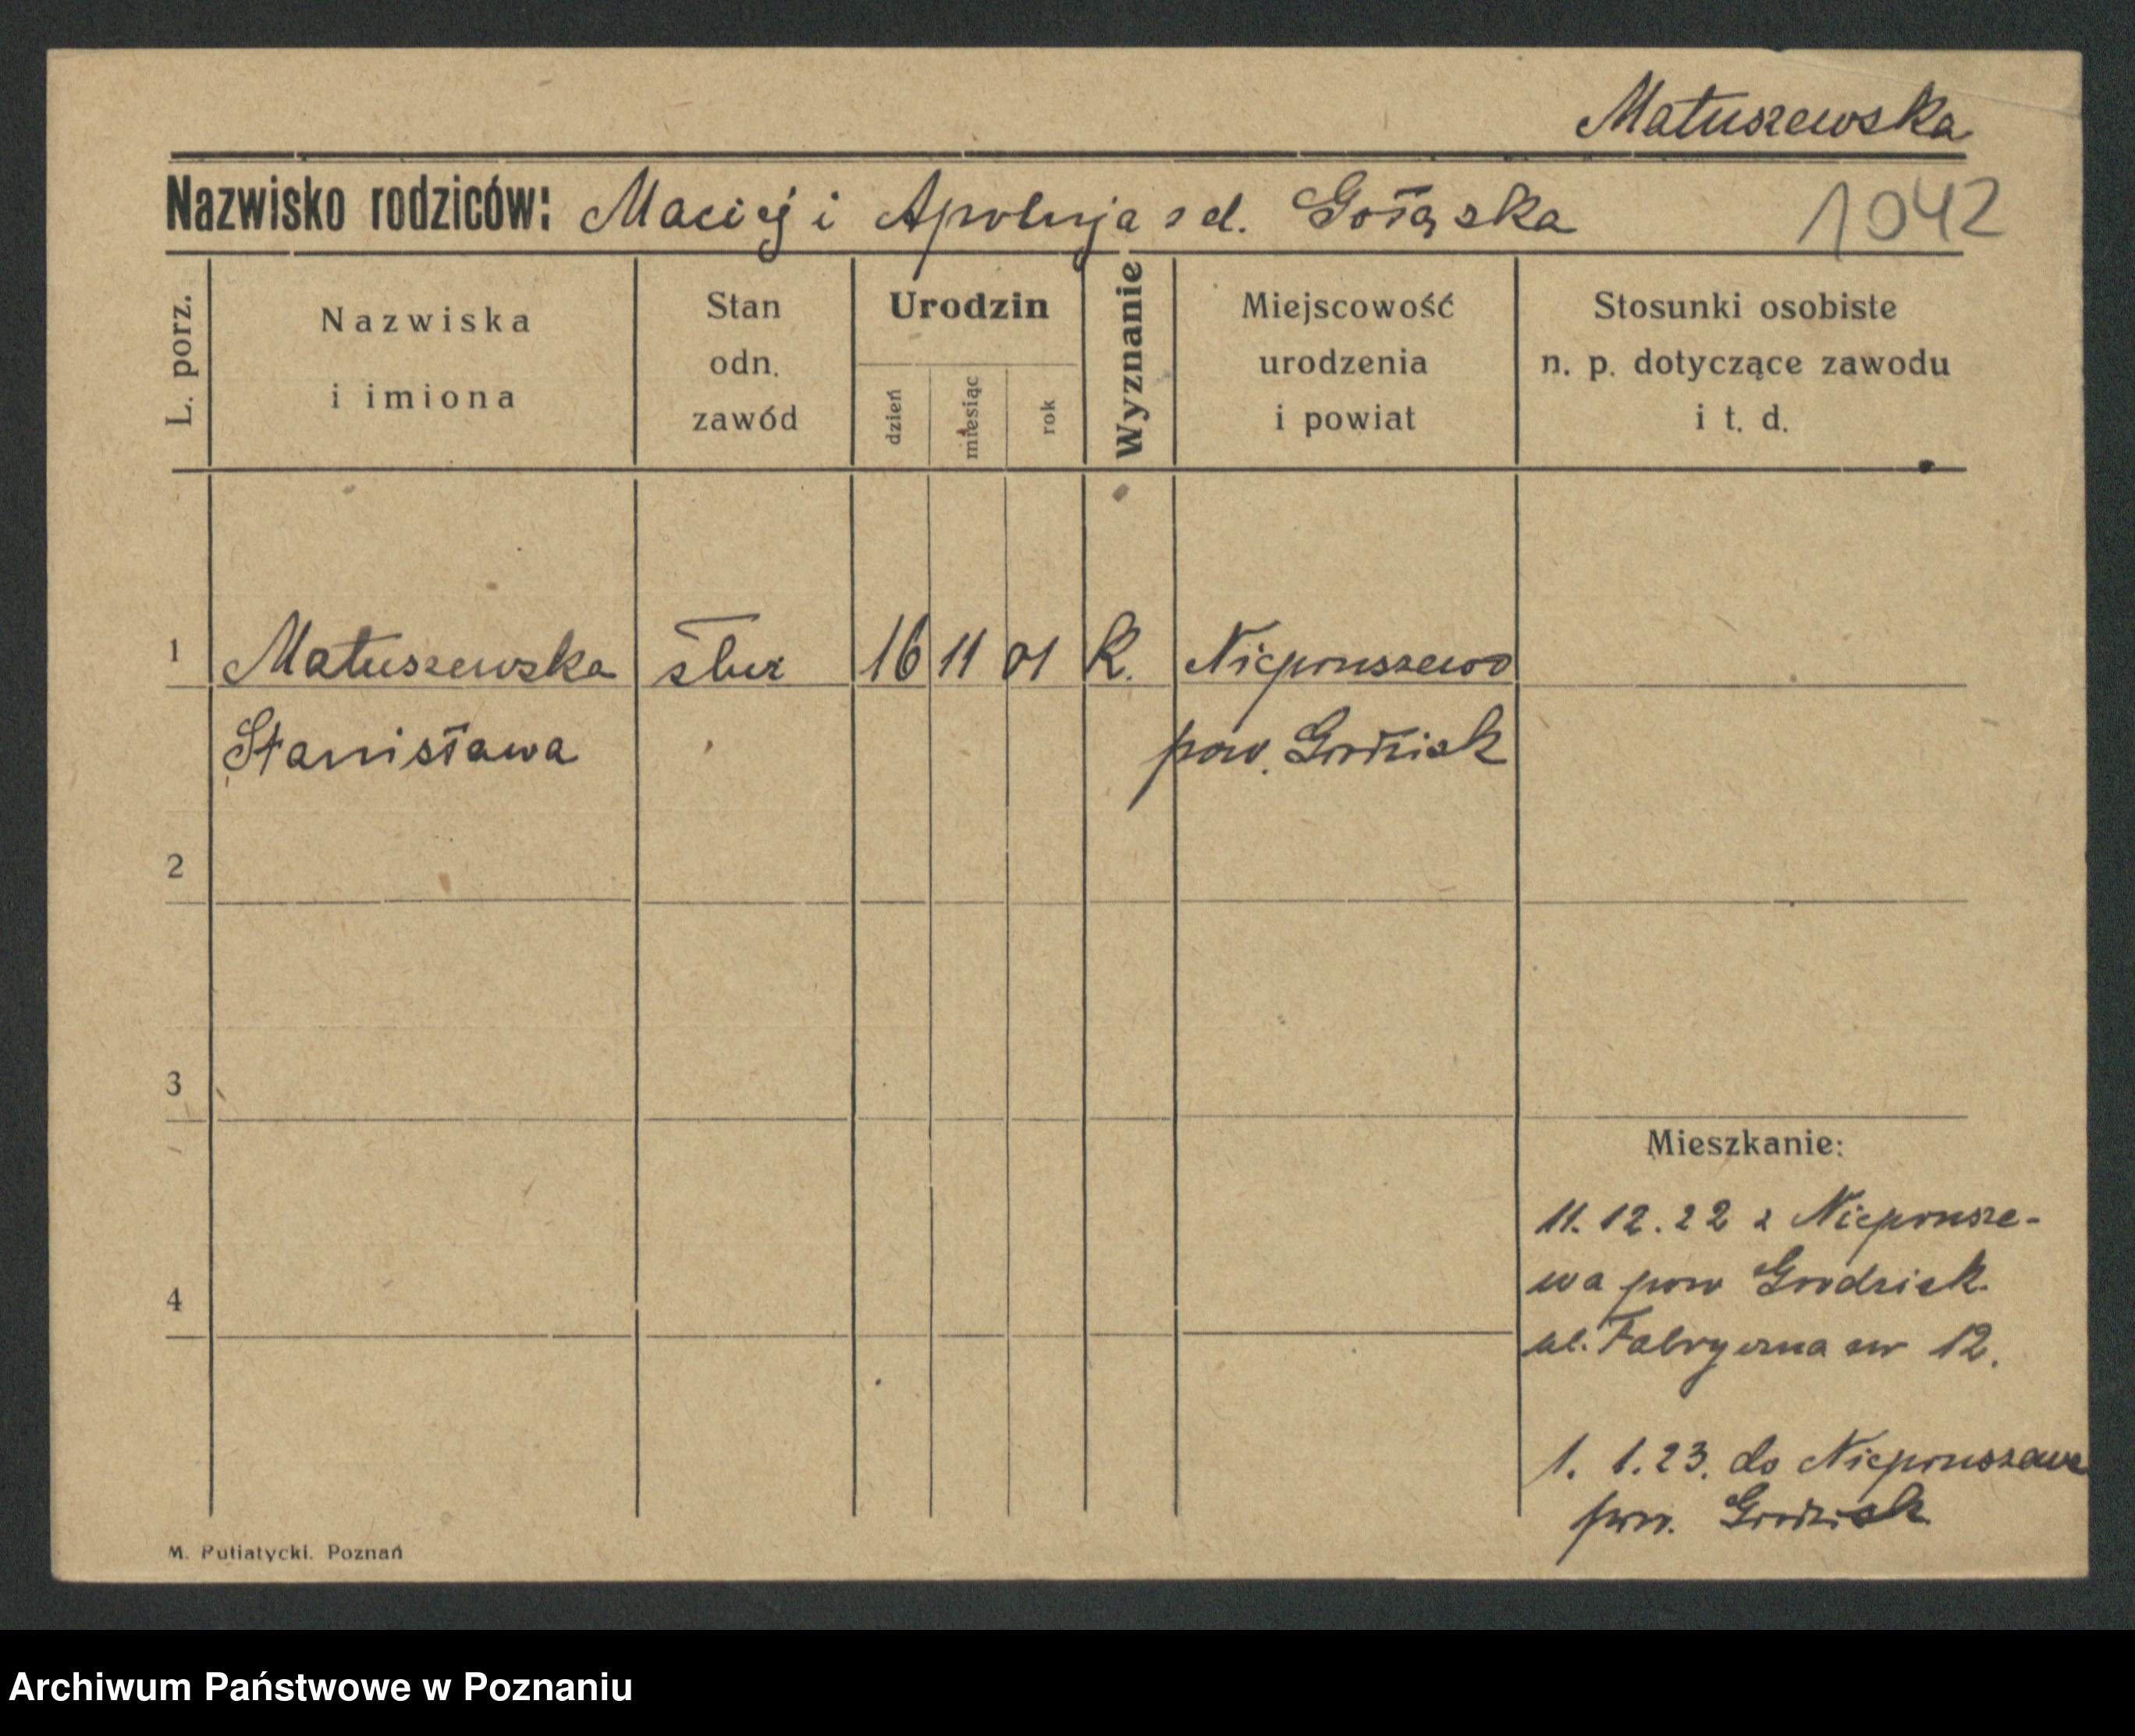 Matuszewska
Nazwisko rodziców: Maciej i Apolonja z d. Gołąska
1042
L. porz.
Nazwiska
i imiona
Stan
odn.
zawód
Urodzin
dzień
miesiąc
rok
Wyznanie
Miejscowość
urodzenia
i powiat
Stosunki osobiste
n. p. dotyczące zawodu
i t. d.
1 Matuszewska służ 16 11 01 k. Niepruszewo
Stanisława pow. Grodzisk
2
3
Mieszkanie:
11. 12. 22 z Nieprusze-
wa pow Grodzisk.
4
ul. Fabryczna nr 12.
1. 1. 23. do Niepruszewa
pow. Grodzisk
M. Putiatycki. Poznań
Archiwum Państwowe w Poznaniu